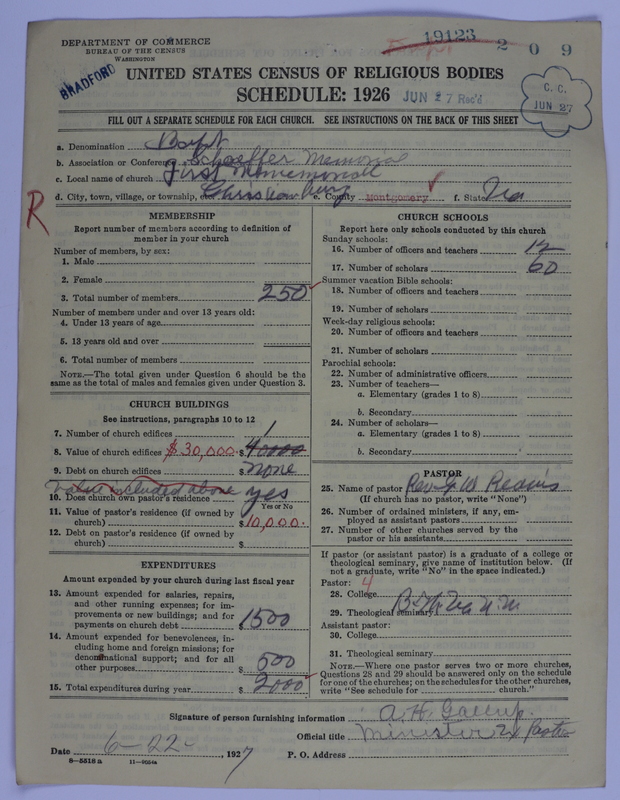 DEPARTMENT OF COMMERCE
BUREAU OF THE CENSUS
WASHINGTON
BRADFORD
19123
209
UNITED STATES CENSUS OF RELIGIOUS BODIES
SCHEDULE: 1926
JUN 27 Rec'd
C. C.
JUN 27
FILL OUT A SEPARATE SCHEDULE FOR EACH CHURCH. SEE INSTRUCTIONS ON THE BACK OF THIS SHEET
a. Denomination Bapt
b. Association or Conference Schaeffer Memorial
c. Local name of church First
d. City, town, village, or township, etc. Christiansburg e. County Montgomery f. State Va
R
MEMBERSHIP
Report number of members according to definition of
member in your church
Number of members, by sex:
1. Male
2. Female
3. Total number of members 250
Number of members under and over 13 years old:
4. Under 13 years of age
5. 13 years old and over
6. Total number of members
NOTE.—The total given under Question 6 should be the
same as the total of males and females given under Question 3.
CHURCH BUILDINGS
See instructions, paragraphs 10 to 12
7. Number of church edifices 1
8. Value of church edifices $30,000. $ 40000
9. Debt on church edifices $ none
Value included above
10. Does church own pastor's residence yes
Yes or No
11. Value of pastor's residence (if owned by
church) $10,000.
12. Debt on pastor's residence (if owned by
church) $
EXPENDITURES
Amount expended by your church during last fiscal year
13. Amount expended for salaries, repairs,
and other running expenses; for im-
provements or new buildings; and for
payments on church debt $ 1500
14. Amount expended for benevolences, in-
cluding home and foreign missions; for
denominational support; and for all
other purposes $ 500
15. Total expenditures during year $ 2000
CHURCH SCHOOLS
Report here only schools conducted by this church
Sunday schools:
16. Number of officers and teachers 12
17. Number of scholars 60
Summer vacation Bible schools:
18. Number of officers and teachers
19. Number of scholars
Week-day religious schools:
20. Number of officers and teachers
21. Number of scholars
Parochial schools:
22. Number of administrative officers
23. Number of teachers—
a. Elementary (grades 1 to 8)
b. Secondary
24. Number of scholars—
a. Elementary (grades 1 to 8)
b. Secondary
PASTOR
25. Name of pastor Rev. J. W. Reavis
(If church has no pastor, write "None")
26. Number of ordained ministers, if any, em-
ployed as assistant pastors
27. Number of other churches served by the
pastor or his assistants
If pastor (or assistant pastor) is a graduate of a college or
theological seminary, give name of institution below. (If
not a graduate, write "No" in the space indicated.)
Pastor: 4
28. College
29. Theological seminary
Assistant pastor:
30. College
31. Theological seminary
NOTE.—Where one pastor serves two or more churches,
Questions 28 and 29 should be answered only on the schedule
for one of the churches; on the schedules for the other churches,
write "See schedule for church."
Signature of person furnishing information A. H. Gallup.
Official title Minister Ex Pastor
Date 6-22-, 1927 P. O. Address
8—5518 a 11—9054a